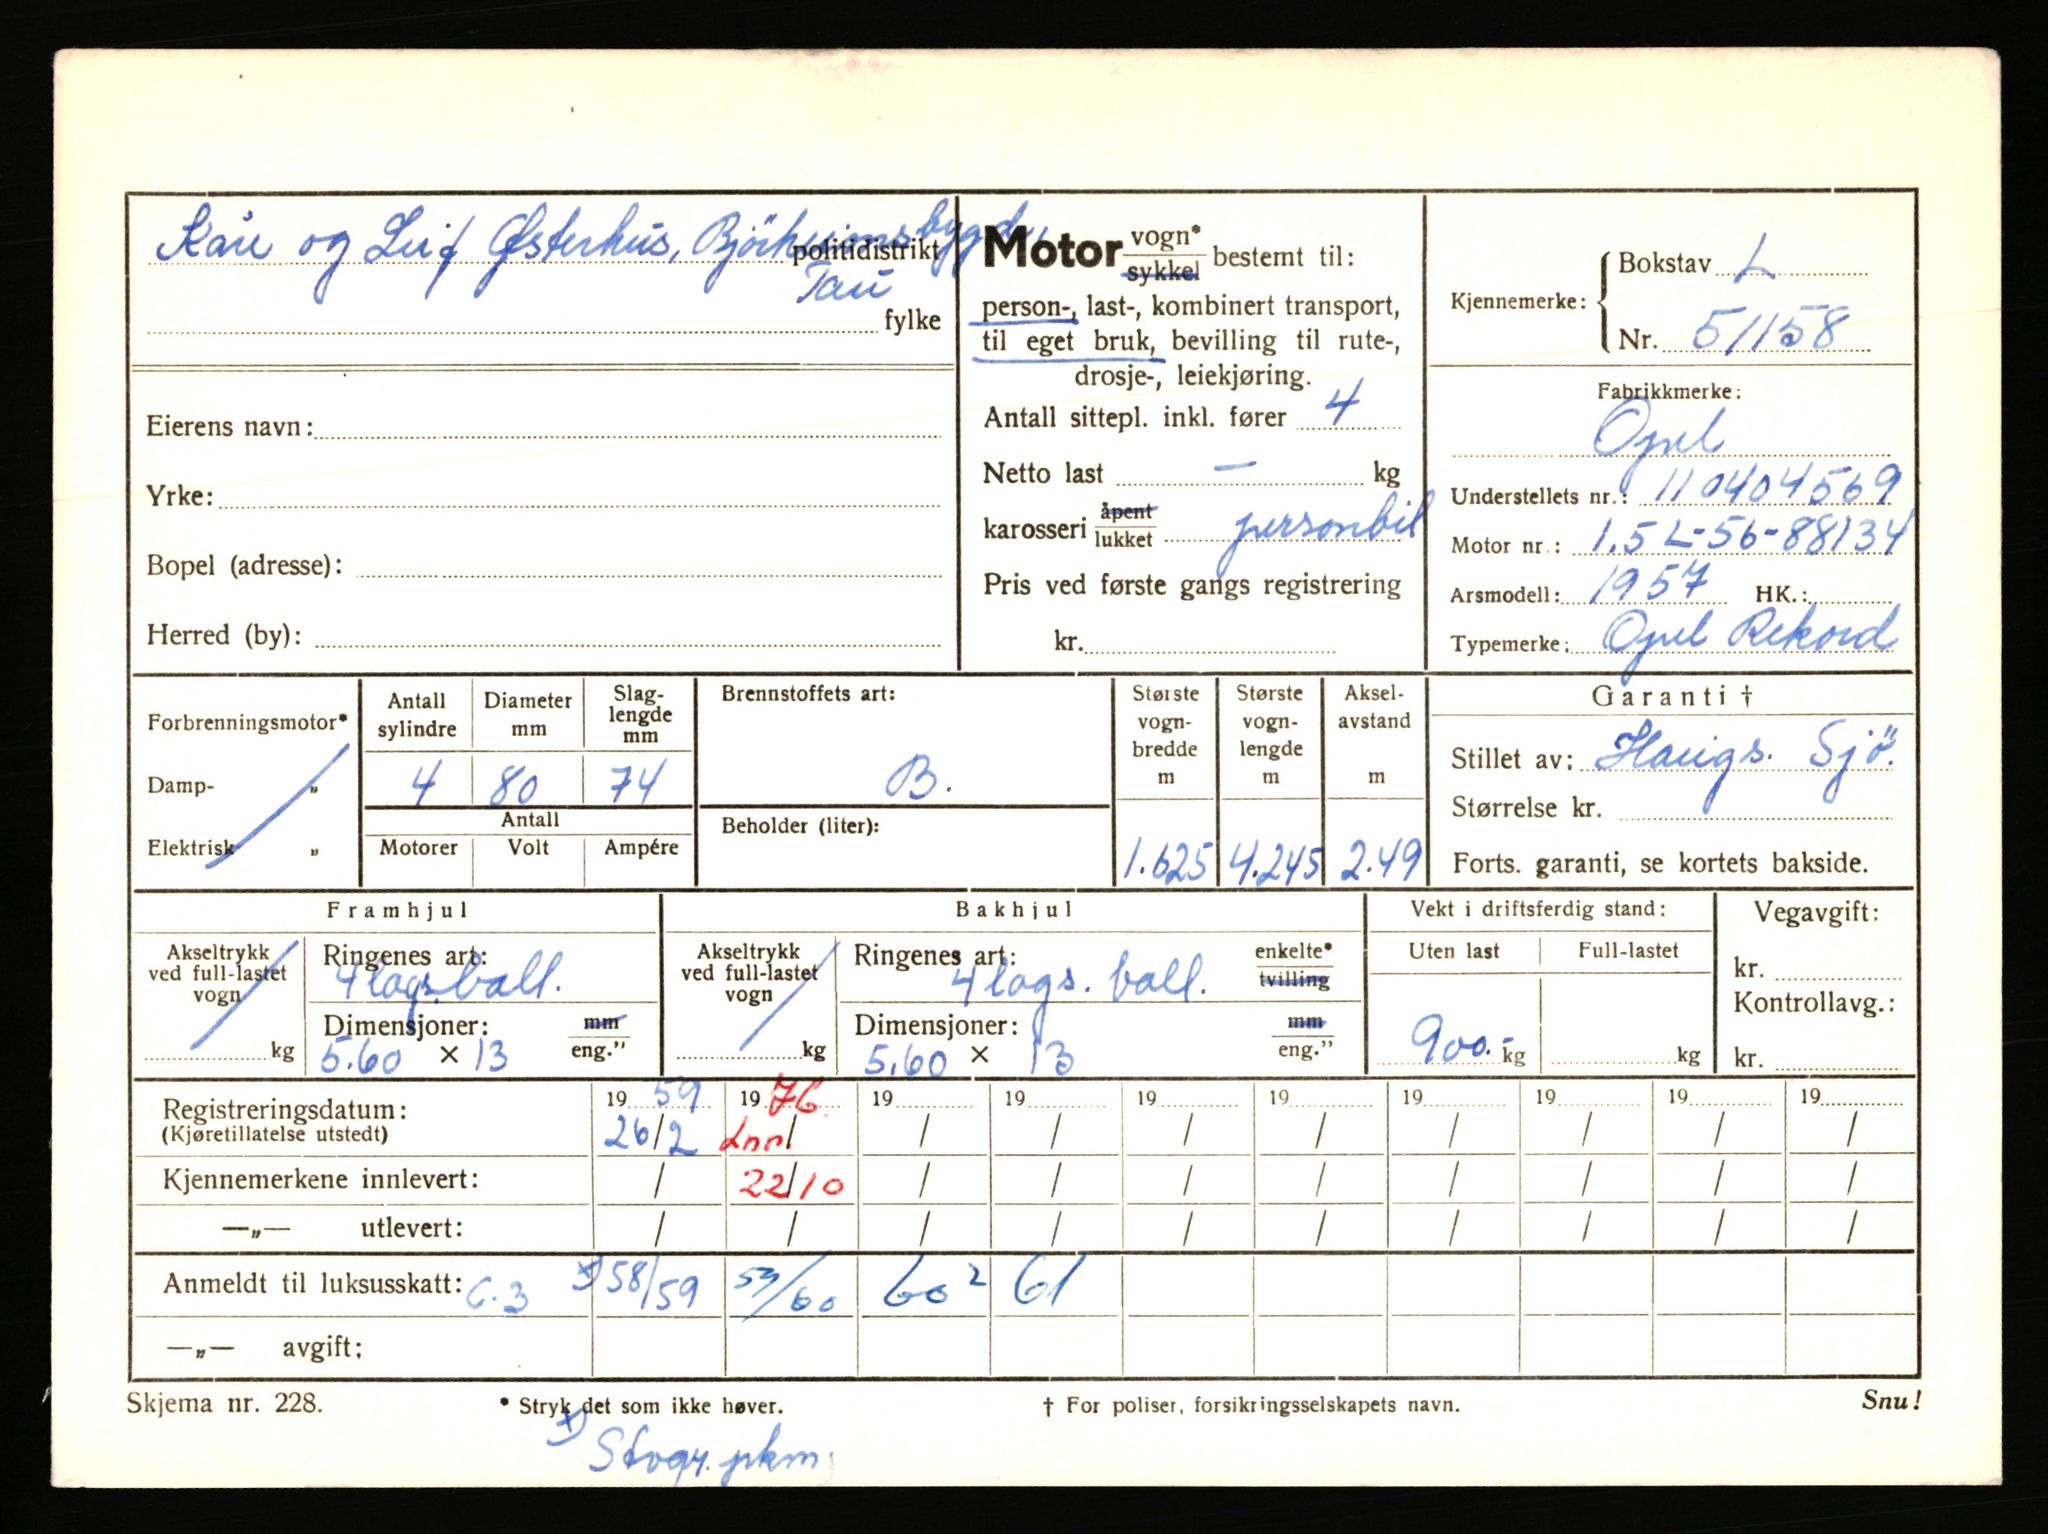 Kåre og Leif Østerhus, Bjørheimsbygd,
politidistrikt
Tau
fylke
Eierens navn:
Yrke:
Bopel (adresse):
Herred (by):
Motor vogn* sykkel bestemt til:
person-, last-, kombinert transport,
til eget bruk, bevilling til rute-,
drosje-, leiekjøring.
Antall sittepl. inkl. fører 4
Netto last — kg
karosseri åpent lukket personbil
Pris ved første gangs registrering
kr.
Kjennemerke: Bokstav L
Nr. 51158
Fabrikkmerke:
Opel
Understellets nr.: 110404569
Motor nr.: 1.5 L-56-88134
Arsmodell: 1957 HK.:
Typemerke: Opel Rekord
Forbrenningsmotor*
Damp- „
Elektrisk „
Antall sylindre
Diameter mm
Slag-lengde mm
4 80 74
Antall
Motorer Volt Ampére
Brennstoffets art:
B.
Beholder (liter):
Største vogn-bredde m
Største vogn-lengde m
Aksel-avstand m
1.625 4.245 2.49
Garanti †
Stillet av: Haugs. Sjø.
Størrelse kr.
Forts. garanti, se kortets bakside.
Framhjul
Akseltrykk ved full-lastet vogn
kg
Ringenes art:
4 lags. ball.
Dimensjoner: mm eng.”
5.60 × 13
Bakhjul
Akseltrykk ved full-lastet vogn
kg
Ringenes art: enkelte* tvilling
4 lags. ball.
Dimensjoner: mm eng.”
5.60 × 13
Vekt i driftsferdig stand:
Uten last Full-lastet
900.- kg kg
Vegavgift:
kr.
Kontrollavg.:
kr.
Registreringsdatum: 19 59 19 76 19 19 19 19 19 19 19 19
(Kjøretillatelse utstedt) 26/2 Inn/ / / / / / / / /
Kjennemerkene innlevert: / 22/10 / / / / / / / /
—„— utlevert: / / / / / / / / / /
Anmeldt til luksusskatt: C.3 x) 58/59 59/60 60² 61
—„— avgift:
Skjema nr. 228. * Stryk det som ikke høver. † For poliser, forsikringsselskapets navn. Snu!
x) Stvgr. pkm.